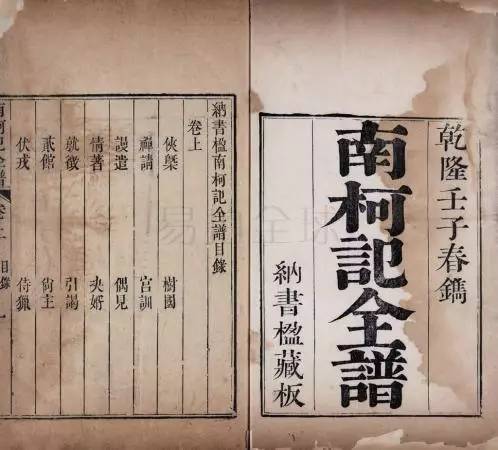 乾隆壬子春鐫
南柯記全譜
納書楹藏板
納書楹南柯記全譜目錄
卷上
俠槩 樹國
禪請 宮訓
謾遣 偶見
情著 决婿
就徵 引謁
貳館 尚主
伏戎 侍獵
南柯記全譜 卷上 目錄 一